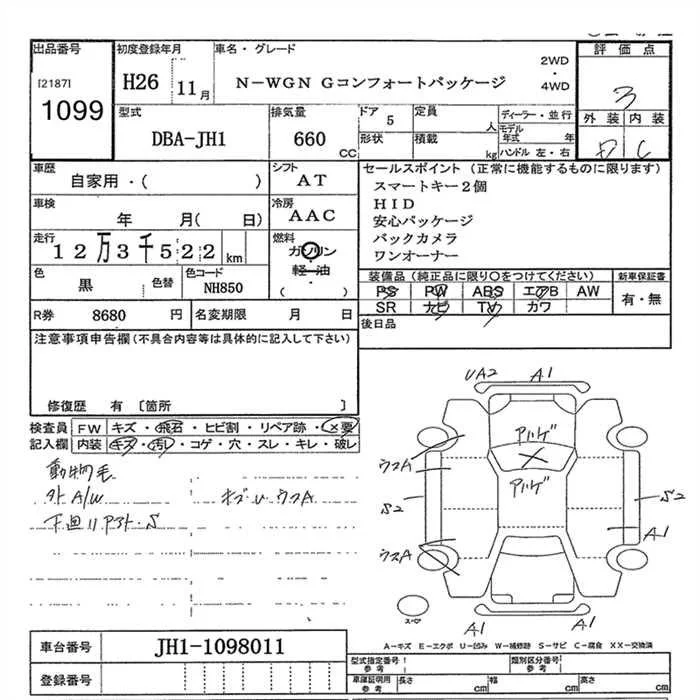 出品番号
[2187]
1099
初度登録年月
H26 11月
車名・グレード
N-WGN Gコンフォートパッケージ
2WD
・
4WD
評価点
3
外装 内装
C
型式
DBA-JH1
排気量
660 CC
ドア 5
形状
定員 人
積載 kg
ディーラー・並行
モデル年式 年
ハンドル 左・右
車歴
自家用・( )
シフト
AT
車検
年 月( 日)
冷房
AAC
走行
12万3千522 km
燃料
ガソリン
軽油
・
( )
色
黒
色替
色コード
NH850
R券 8680 円
名変期限 月 日
セールスポイント (正常に機能するものに限ります)
スマートキー2個
HID
安心パッケージ
バックカメラ
ワンオーナー
装備品 (純正品に限り○をつけてください)
PS PW ABS エアB AW
SR ナビ TV カワ
新車保証書
有・無
後日品
注意事項申告欄 (不具合内容等は具体的に記入して下さい)
修復歴 有 〔箇所 〕
検査員記入欄
FW キズ・飛石・ヒビ割・リペア跡・×要
内装 キズ・汚レ・コゲ・穴・スレ・キレ・破レ
動物毛
外A/W キズU ウスA
下廻リ S
UA2 A1
アハゲ
アハゲ
ウスA
S2 S2
A1
ウスA
A1 A1
スペア
A-キズ E-エクボ U-凹み W-補修跡 S-サビ C-腐食 XX-交換済
車台番号
JH1-1098011
登録番号
型式指定番号
参考
類別区分番号
参考
車庫証明用
参考
長さ cm
幅 cm
高さ cm